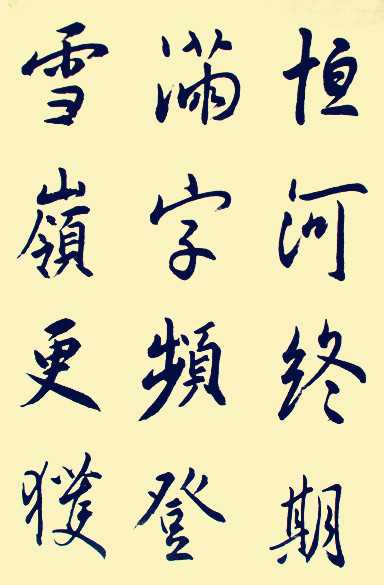 恒河終期
滿字頻登
雪嶺更獲